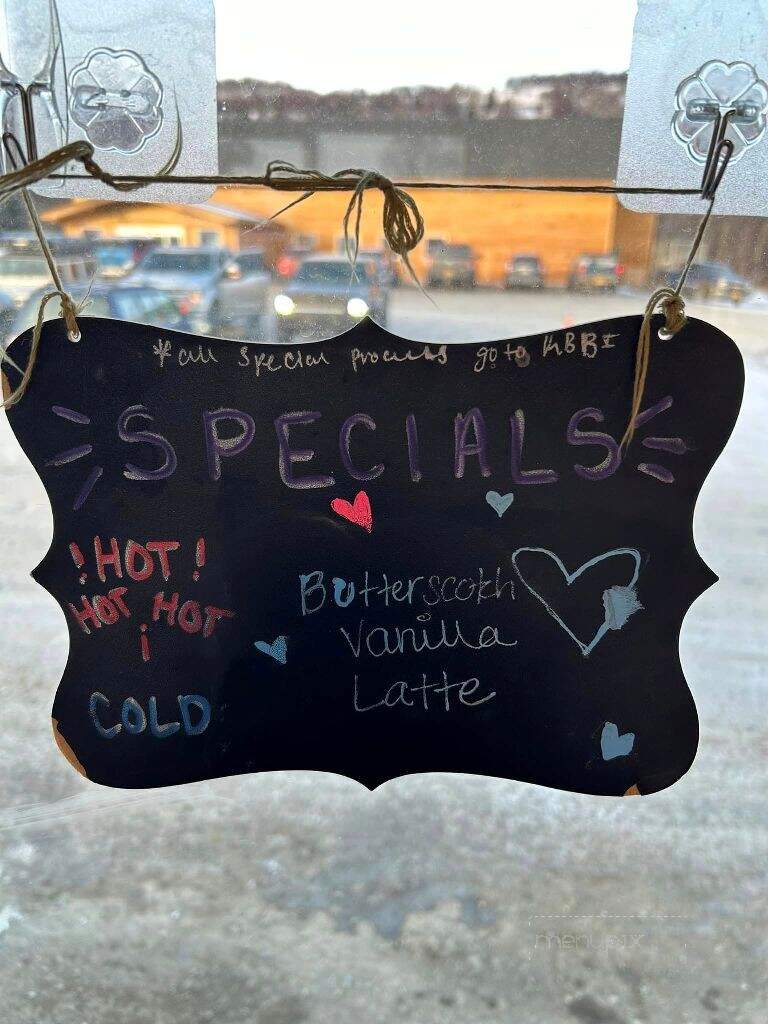 *all special proceeds go to KBBI
SPECIALS
!HOT!
HOT HOT
COLD
Butterscotch
Vanilla
Latte
menupix